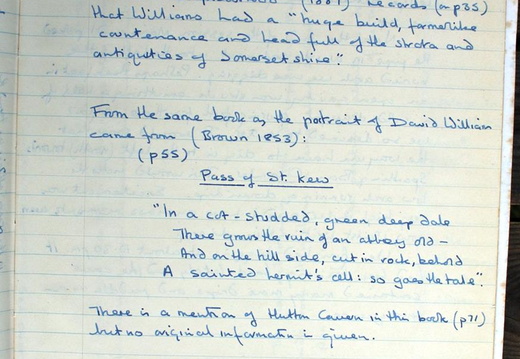 (1881) records (on p35)
that Williams had a "huge build, farmerlike
countenance and head full of the strata and
antiquities of Somersetshire".
From the same book as the portrait of David William
came from (Brown 1853):
(p55)
Pass of St. Kew
"In a cot-studded, green deep dale
There grows the ruin of an abbey old -
And on the hill side, cut in rock, behold
A sainted hermit's cell: so goes the tale".
There is a mention of Hutton Cavern in this book (p71)
but no original information is given.